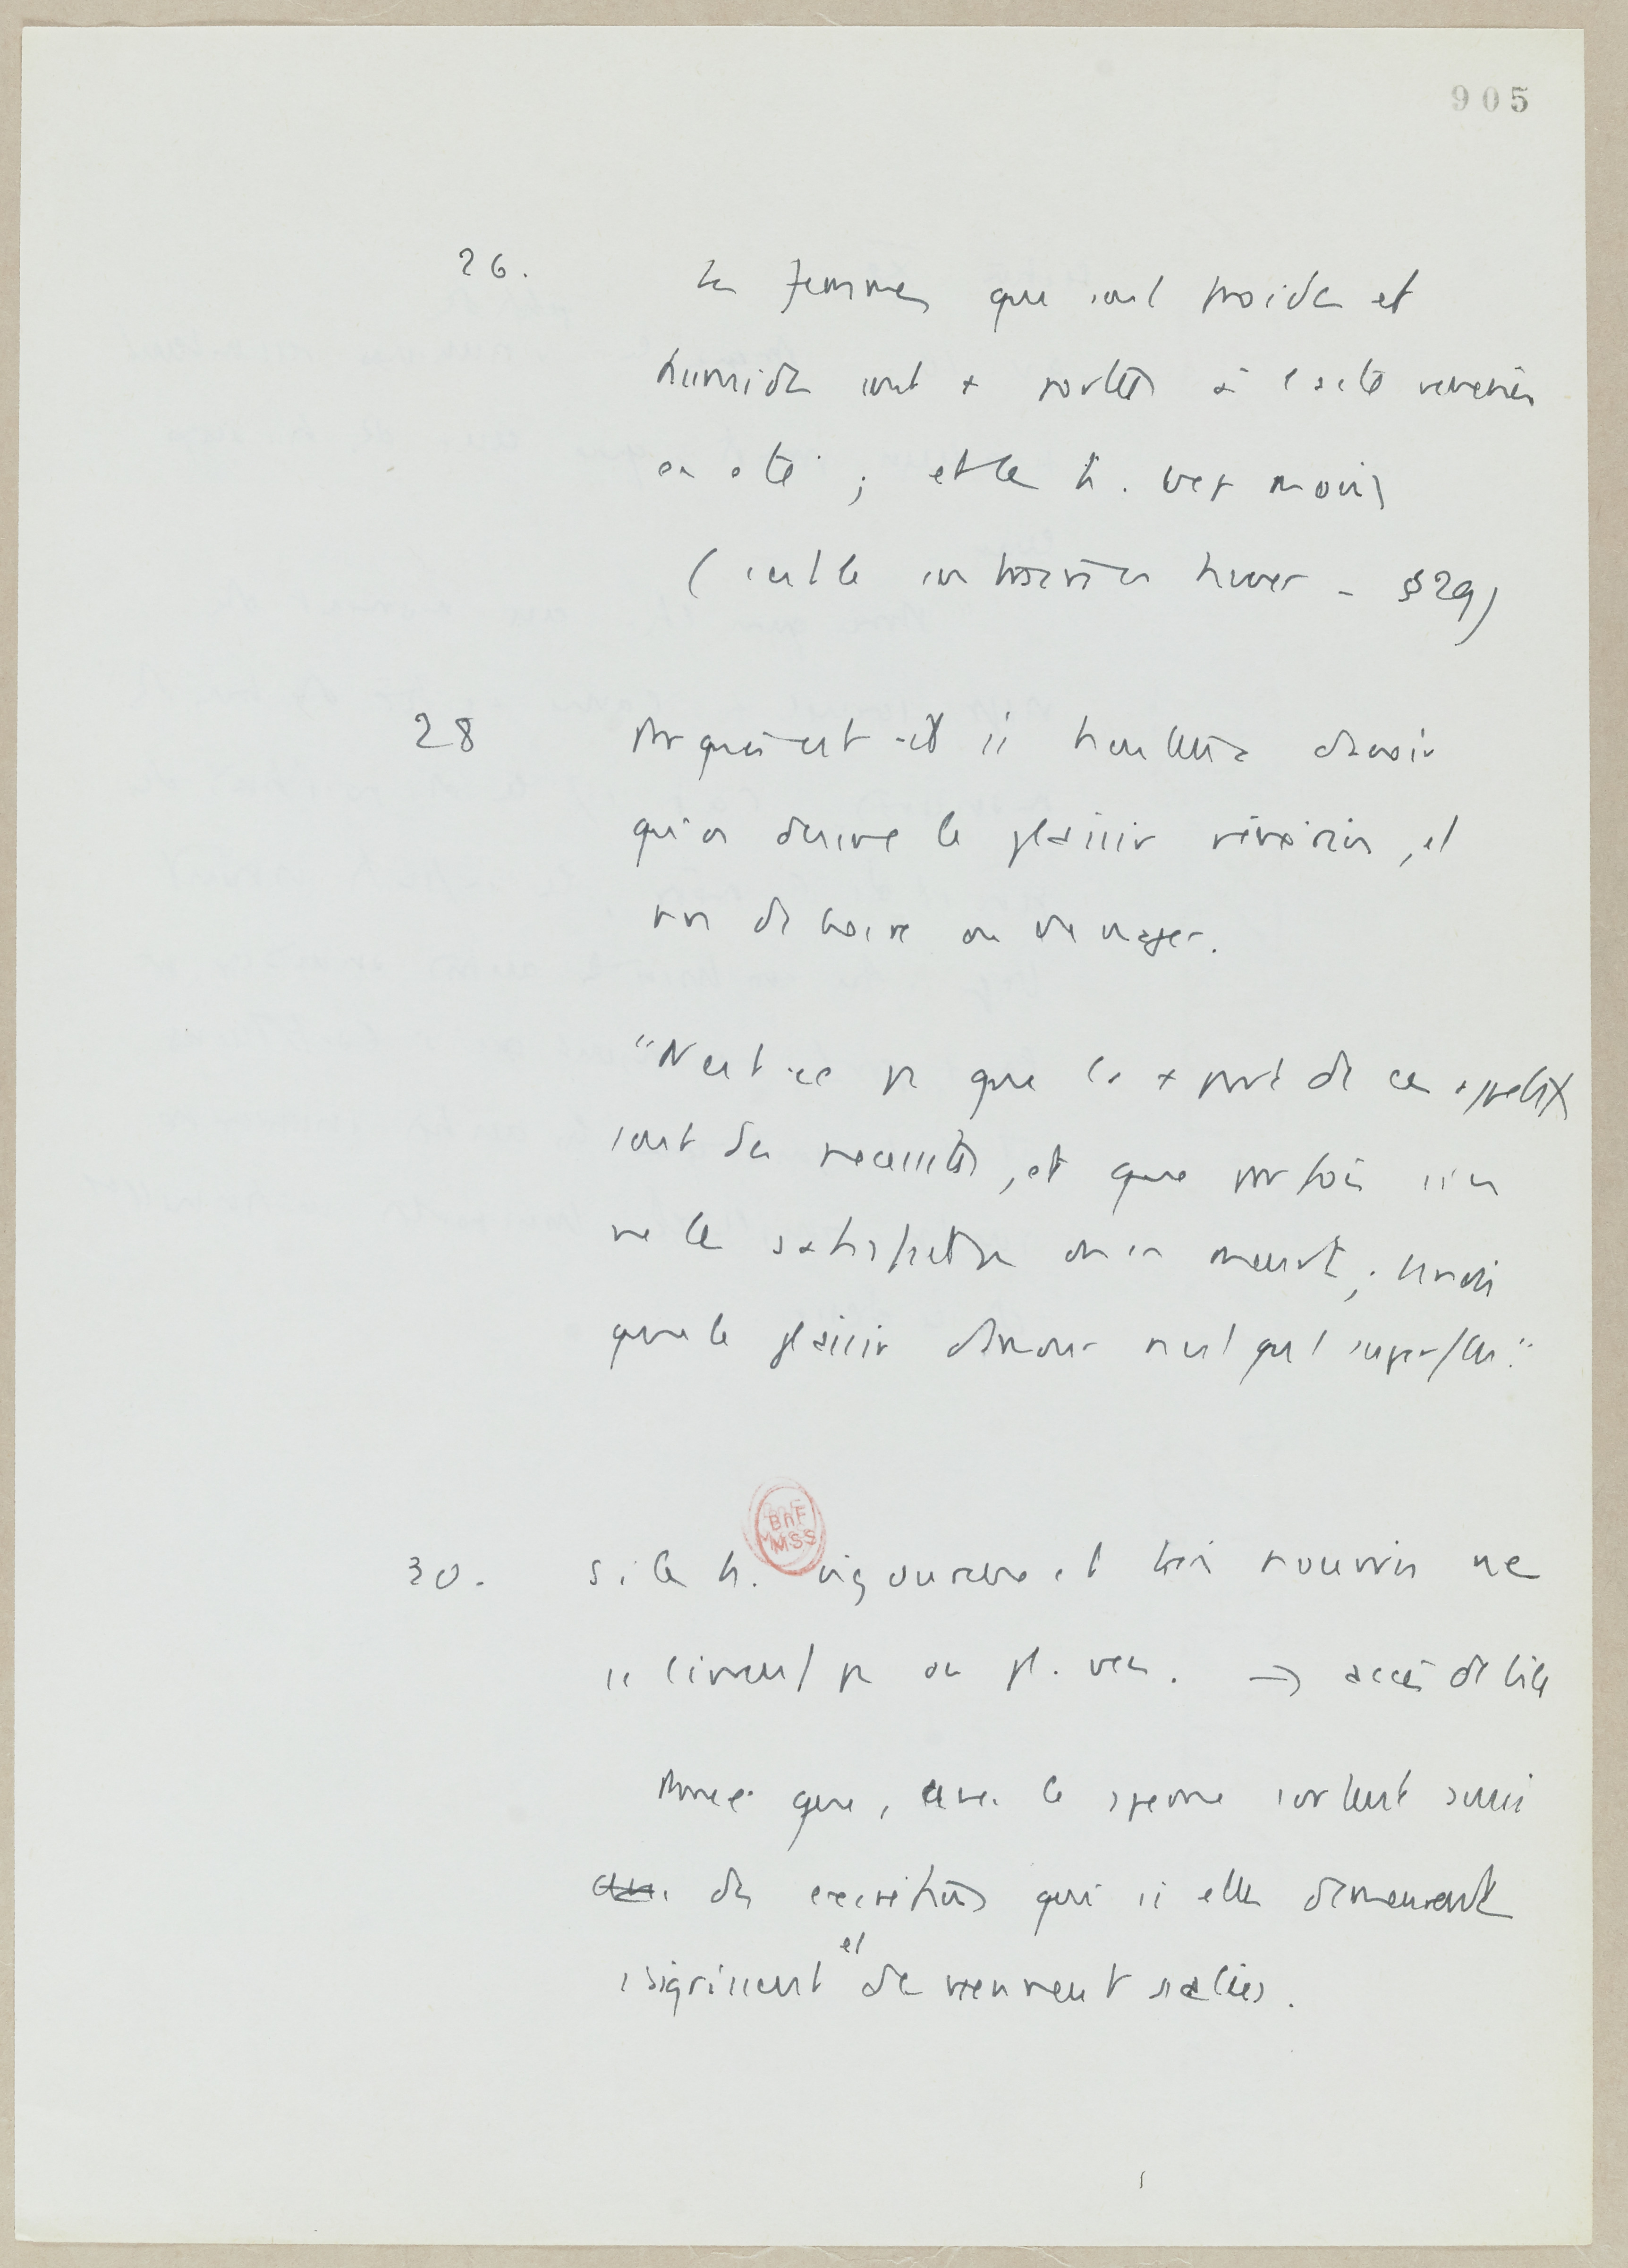 905
26. Les femmes qui sont froides et
humides sont + portées à l'acte vénérien
en été ; et les h. vers moins
(c'est le contraire en hiver - §29)
28 Pourquoi est-il si honteux d'avoir
qu'on désire le plaisir vénérien, et
non de boire ou de manger.
"N'est-ce pas que la + part de ces appétits
sont des nécessités, et que parfois si on
ne les satisfait pas on en meurt ; tandis
que le plaisir d'amour n'est que superflu."
BnF
MSS
30. Si les h. vigoureux et bien nourris ne
se livrent pas au pl. ven. → accès de bile
Parce que, avec le sperme sortent aussi
des excrétions qui si elles demeurent
s'aigrissent et deviennent